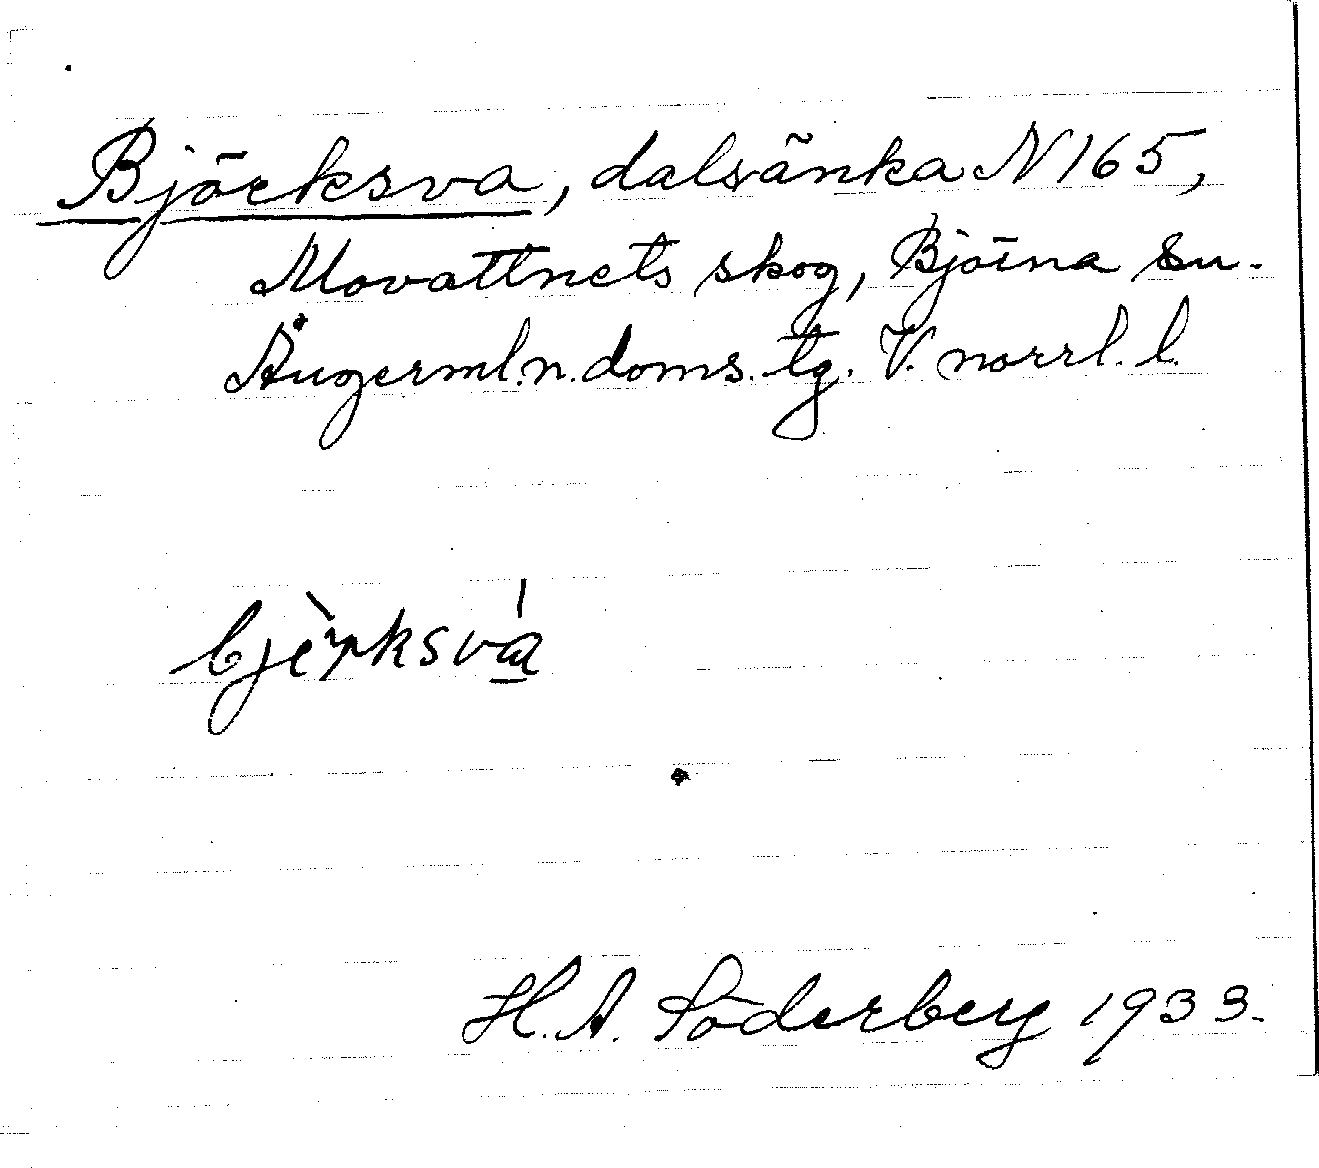 Björksva, dalsänka N 165,
Movattnets skog, Björna sn.
Ångerml.n.doms.tg. V. norrl. l.
bjèrksvá
H. A. Söderberg 1933.